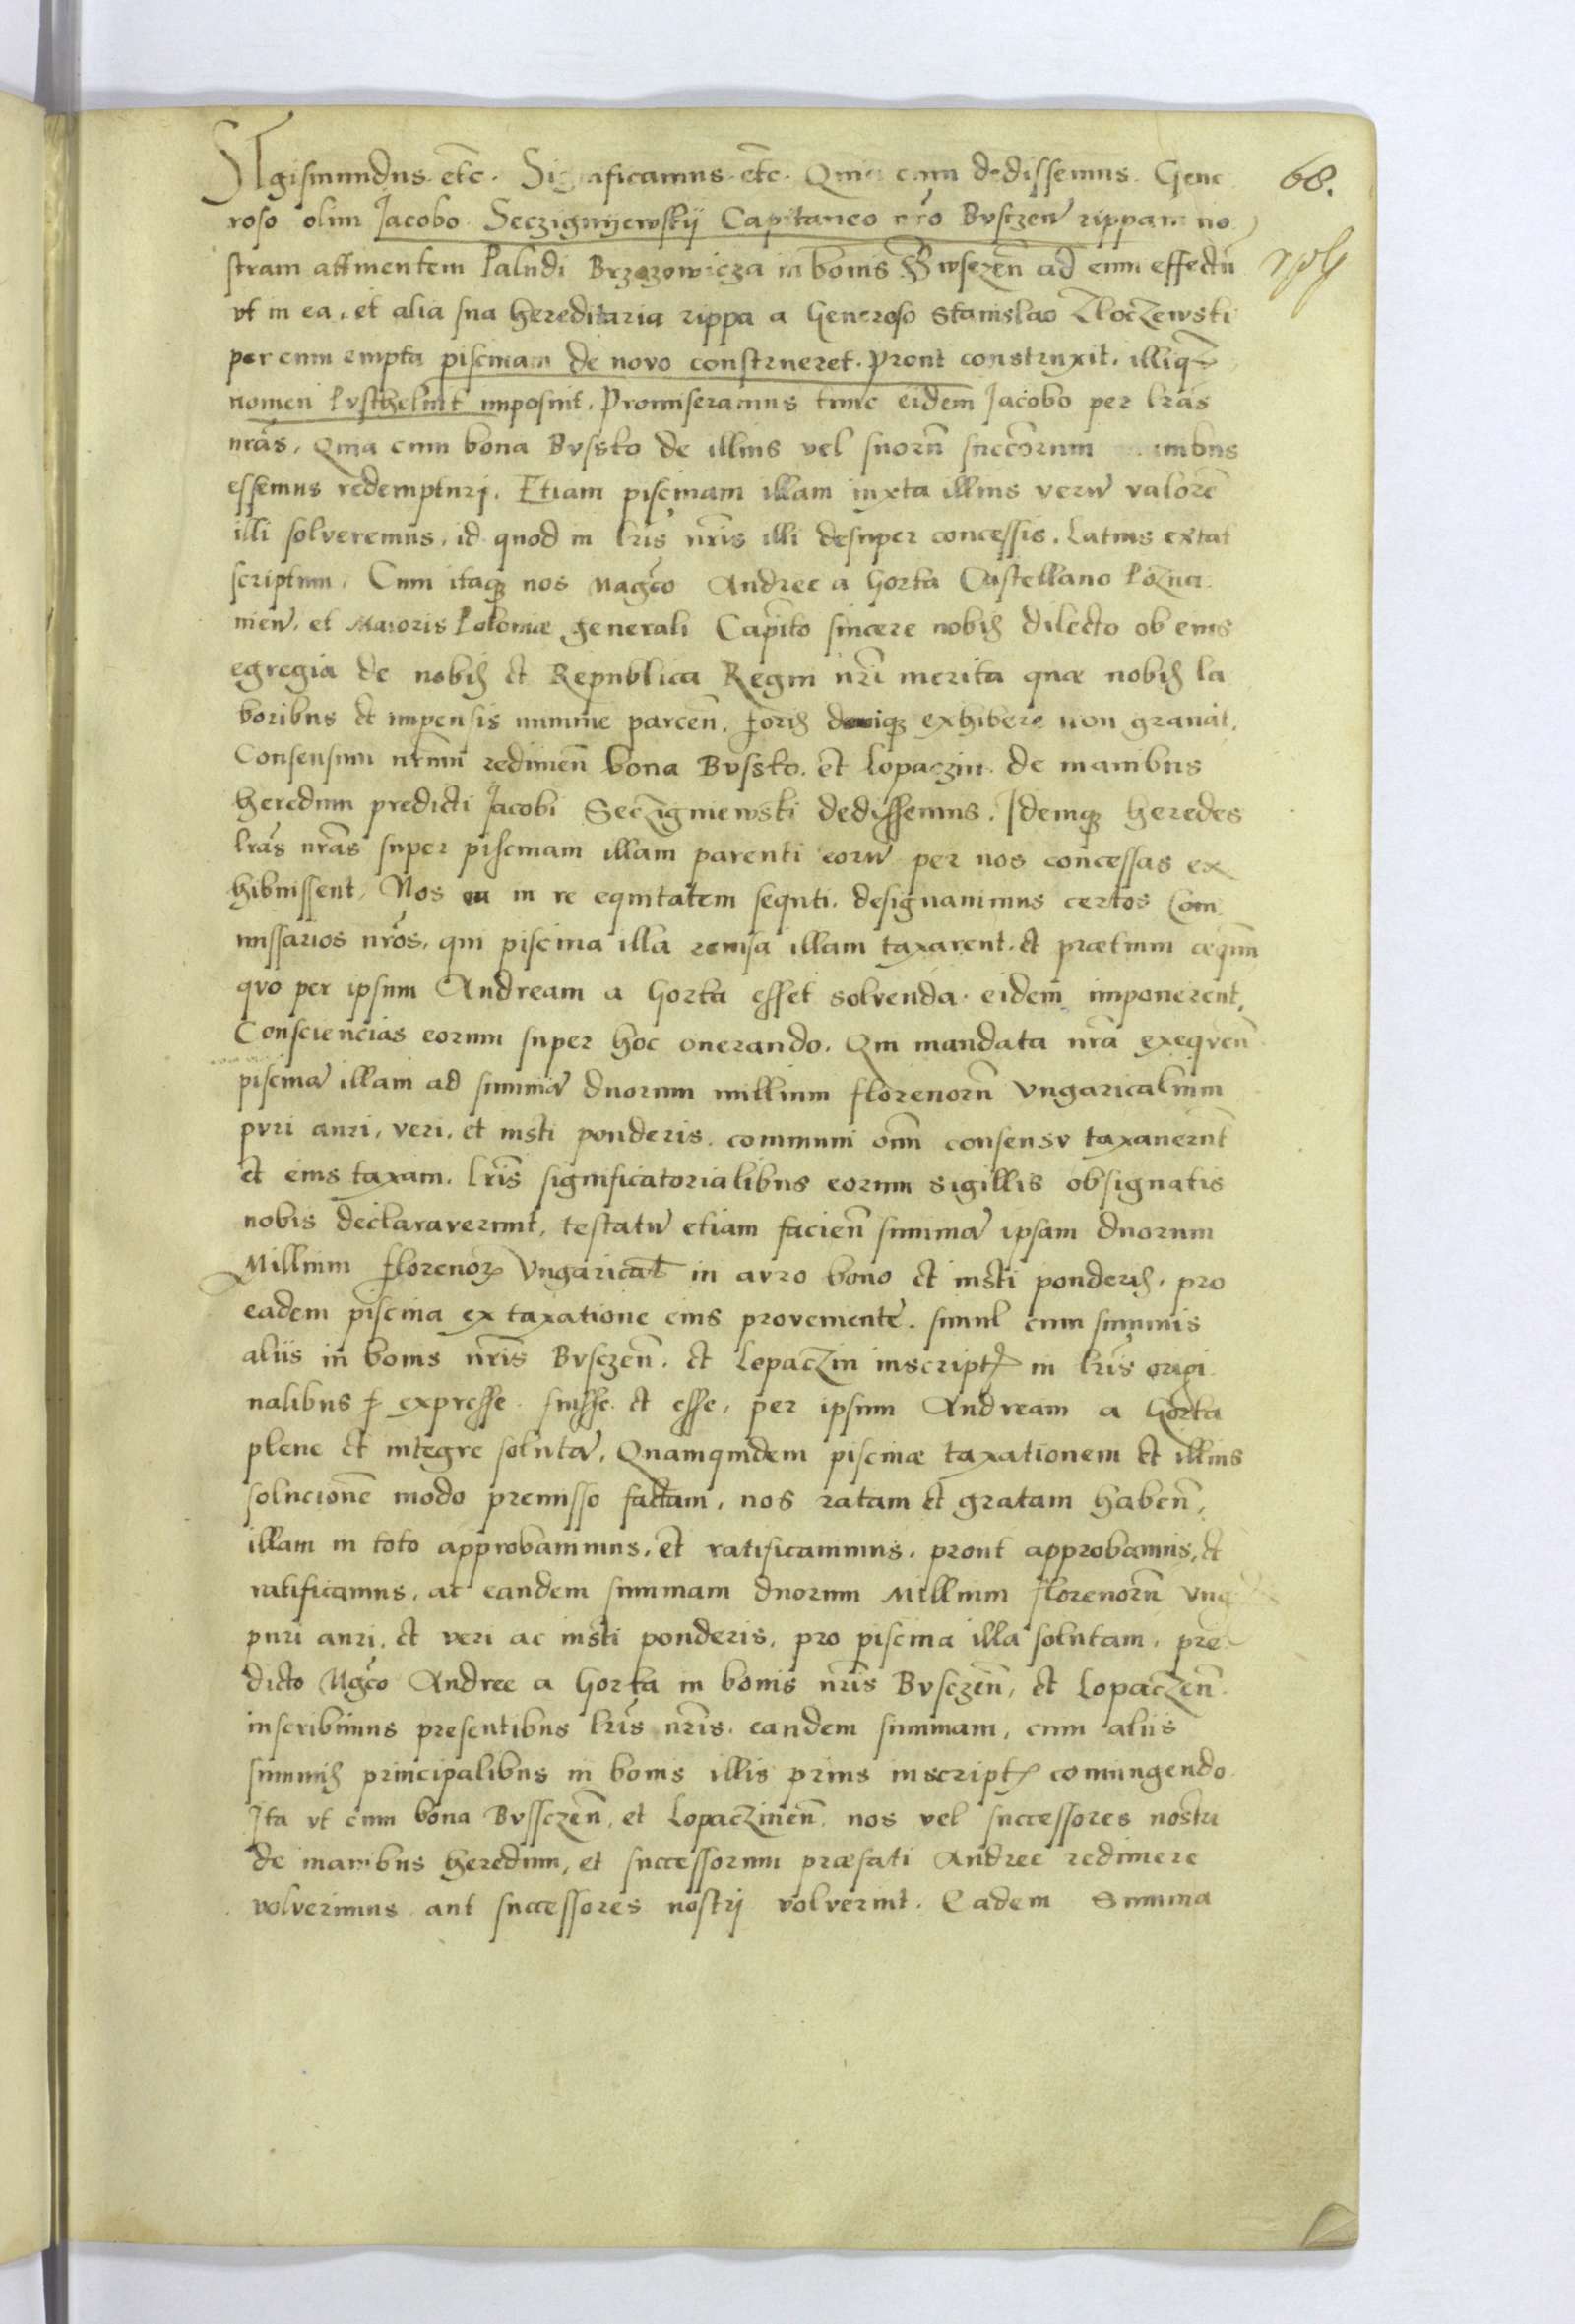 Sigismundus etc. Significamus etc. Quia cum dedissemus Gene
68.
roso olim Jacobo Seczignyewskij Capitaneo nro Busczen̄ rippam no
stram attinentem Paludi Brzozowicza in bonis Bwsczen̄ ad eum effectū
vt in ea, et alia sua hereditaria rippa a Generoso Stanislao Zloczewski
per eum empta piscinam de novo construeret. Prout construxit, illiq
nomen Pvsthelnik imposuit. Promiseramus tunc eidem Jacobo per lr̄as
nr̄as, Quia cum bona Bvssko de illius vel suorū succorum manibus
essemus redempturj. Etiam piscinam illam iuxta illius verū valorē
illi solveremus, id quod in lr̄is nr̄is illi desuper concessis. Latius extat
scriptum. Cum itaq nos Magco Andree a Gorka Castellano Pozna
nien̄, et Maioris Poloniæ generali Capito sincere nobis dilecto ob eius
egregia de nobis et Republica Regni nr̄i merita quæ nobis la
boribus et impensis minime parcen̄, foris deniq exhibere non grauat.
Consensum nrm̄ redimen̄ bona Bvssko et Lopaczin de manibus
heredum predicti Jacobi Seczigniewski dedissemus. Idemq heredes
lr̄as nr̄as super piscinam illam parenti eorū per nos concessas ex
hibuissent, Nos ea in re equitatem sequti, designauimus certos Com
missarios nr̄os, qui piscina illa reuisa illam taxarent et prætium æquum
quo per ipsum Andream a Gorka esset solvenda eidem imponerent,
Consciencias eorum super hoc onerando. Qui mandata nr̄a exeqven̄
piscinā illam ad summā duorum millium florenorū vngaricalium
pvri auri, veri, et iusti ponderis, communi omī consensv taxauerunt
et eius taxam, lr̄is significatorialibus eorum sigillis obsignatis
nobis declaraverunt, testatū etiam facien̄ summā ipsam duorum
Millium florenor Vngarical in avro bono et iusti ponderis, pro
eadem piscina ex taxatione eius provenientē, simul cum summis
aliis in bonis nr̄is Bvsczen̄, et Lopaczin inscript in lr̄is origi
nalibus expresse fuisse et esse, per ipsum Andream a Gorka
plene et integre solutā, Quamquidem piscinæ taxationem et illius
solucionē modo premisso factam, nos ratam et gratam haben̄,
illam in toto approbauimus, et ratificauimus, prout approbamus, et
ratificamus, ac eandem summam duorum Millium florenorū vng
puri auri, et veri ac iusti ponderis, pro piscina illa solutam, pre
dicto Mgco Andree a Gorka in bonis nr̄is Bvsczen̄, et Lopaczen̄
inscribimus presentibus lr̄is nr̄is, eandem summam, cum aliis
summis principalibus in bonis illis prius inscript coniungendo
Ita vt cum bona Bvssczen̄, et Lopaczinen̄, nos vel successores nostri
de manibus heredum, et successorum præfati Andree redimere
volverimus aut successores nostrj volverint. Eadem Summa